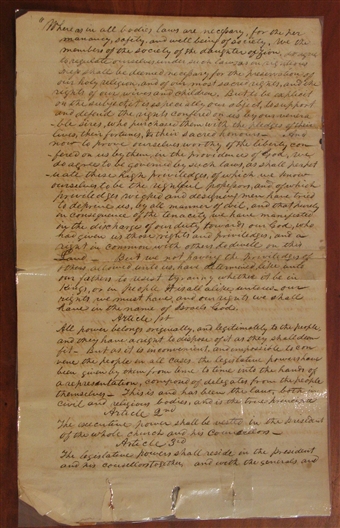 Whereas in all bodies laws are necessary, for the per
manancy, safety, and well being of society, we the
members of the society of the daughter of zion, do agree
to regulate ourselves under such laws as in righteous
ness shall be deemed necessary for the preservation of
our holy religion, and of our most sacred rights, and the
rights of our wives and children. But to be explicit
on the subject it is especially our object, to support
and defend the rights confered on us by our venera
ble sires, who purchased them with the pledges of their
lives, their fortunes, & their sacred honours — And
now to prove ourselves worthy of the liberty con
fered on us by them, in the providence of God, we
do agree to be governed by such laws, as shall perpet
uate these high privileges, of which we know
ourselves to be the rightful possessors, and of which
privileges wicked and designing men have tried
to deprive us, by all manner of evil, and that purely
in consequence of the tenacity we have manifested
in the discharge of our duty towards our God, who
had given us those rights and privileges, and a
right in common with others to dwell on this
Land — But we not having the privileges of
others allowed unto us, have determined like unto
our fathers to resist tyrany whether it be in
Kings, or in people It is all alike unto us our
rights we must have, and our rights we shall
have in the name of Israels God.
Article 1st
All power belongs originally, and legitimately to the people,
and they have a right to dispose of it as they shall deem
fit — But as it is inconvenient and impossible to con
vene the people in all cases the legislative powers have
been given by them from time to time into the hands of
a representation, composed of delegates from the people
themselves — This is and has been the law, both in
civil and religious bodies, and is the true principle
Article 2nd
The executive power shall be vested in the president
of the whole church and his Councillors —
Article 3rd
The legislative powers shall reside in the president
and his councilors together, and with the generals and